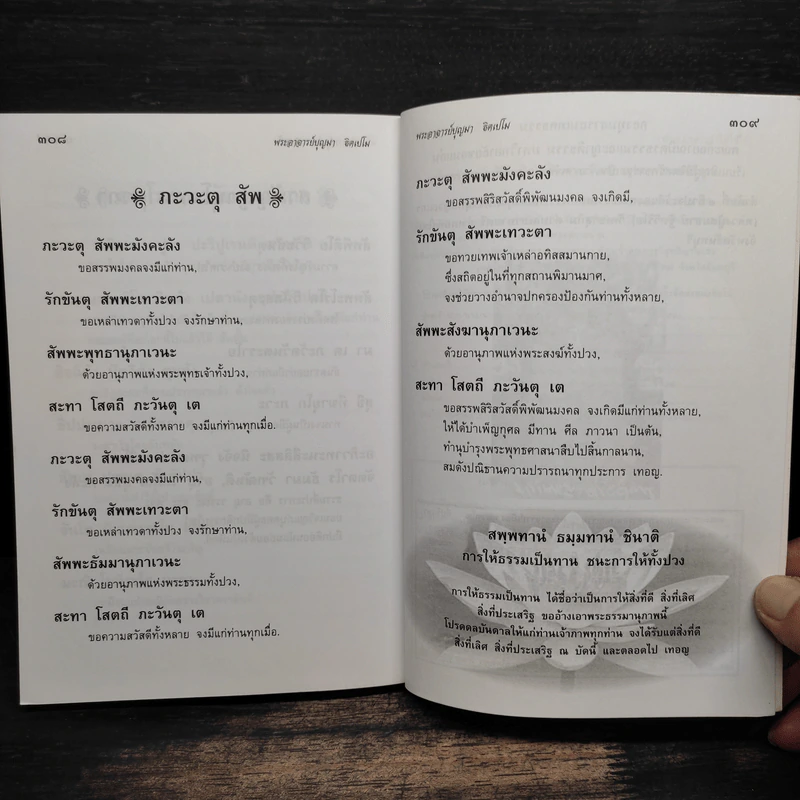 ๓๐๘
พระอาจารย์บุญมา ธิตเปโม
ภะวะตุ สัพ
ภะวะตุ สัพพะมังคะลัง
ขอสรรพมงคลจงมีแก่ท่าน,
รักขันตุ สัพพะเทวะตา
ขอเหล่าเทวดาทั้งปวง จงรักษาท่าน,
สัพพะพุทธานุภาเวนะ
ด้วยอานุภาพแห่งพระพุทธเจ้าทั้งปวง,
สะทา โสตถี ภะวันตุ เต
ขอความสวัสดีทั้งหลาย จงมีแก่ท่านทุกเมื่อ.
ภะวะตุ สัพพะมังคะลัง
ขอสรรพมงคลจงมีแก่ท่าน,
รักขันตุ สัพพะเทวะตา
ขอเหล่าเทวดาทั้งปวง จงรักษาท่าน,
สัพพะธัมมานุภาเวนะ
ด้วยอานุภาพแห่งพระธรรมทั้งปวง,
สะทา โสตถี ภะวันตุ เต
ขอความสวัสดีทั้งหลาย จงมีแก่ท่านทุกเมื่อ.
พระอาจารย์บุญมา ธิตเปโม
๓๐๙
ภะวะตุ สัพพะมังคะลัง
ขอสรรพสิริสวัสดิ์พิพัฒนมงคล จงเกิดมี,
รักขันตุ สัพพะเทวะตา
ขอทวยเทพเจ้าเหล่าอทิสสมานกาย,
ซึ่งสถิตอยู่ในที่ทุกสถานพิมานมาศ,
จงช่วยวางอำนาจปกครองป้องกันท่านทั้งหลาย,
สัพพะสังฆานุภาเวนะ
ด้วยอานุภาพแห่งพระสงฆ์ทั้งปวง,
สะทา โสตถี ภะวันตุ เต
ขอสรรพสิริสวัสดิ์พิพัฒนมงคล จงเกิดมีแก่ท่านทั้งหลาย,
ให้ได้บำเพ็ญกุศล มีทาน ศีล ภาวนา เป็นต้น,
ทำนุบำรุงพระพุทธศาสนาสืบไปสิ้นกาลนาน,
สมดังปณิธานความปรารถนาทุกประการ เทอญ.
สพฺพทานํ ธมฺมทานํ ชินาติ
การให้ธรรมเป็นทาน ชนะการให้ทั้งปวง
การให้ธรรมเป็นทาน ได้ชื่อว่าเป็นการให้สิ่งที่ดี สิ่งที่เลิศ
สิ่งที่ประเสริฐ ขออ้างเอาพระธรรมานุภาพนี้
โปรดดลบันดาลให้แก่ท่านเจ้าภาพทุกท่าน จงได้รับแต่สิ่งที่ดี
สิ่งที่เลิศ สิ่งที่ประเสริฐ ณ บัดนี้ และตลอดไป เทอญ